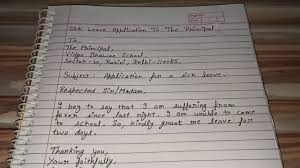 Sick Leave Application To The Principal
To,
The Principal,
Vidya Bhawan School,
Sector-16, Rohini, Delhi-110085.
Subject: Application for a sick leave.
Respected Sir/Madam,
I beg to say that I am suffering from
fever since last night. I am unable to come
to school. So, kindly grant me leave for
two days.
Thanking you,
Your faithfully,